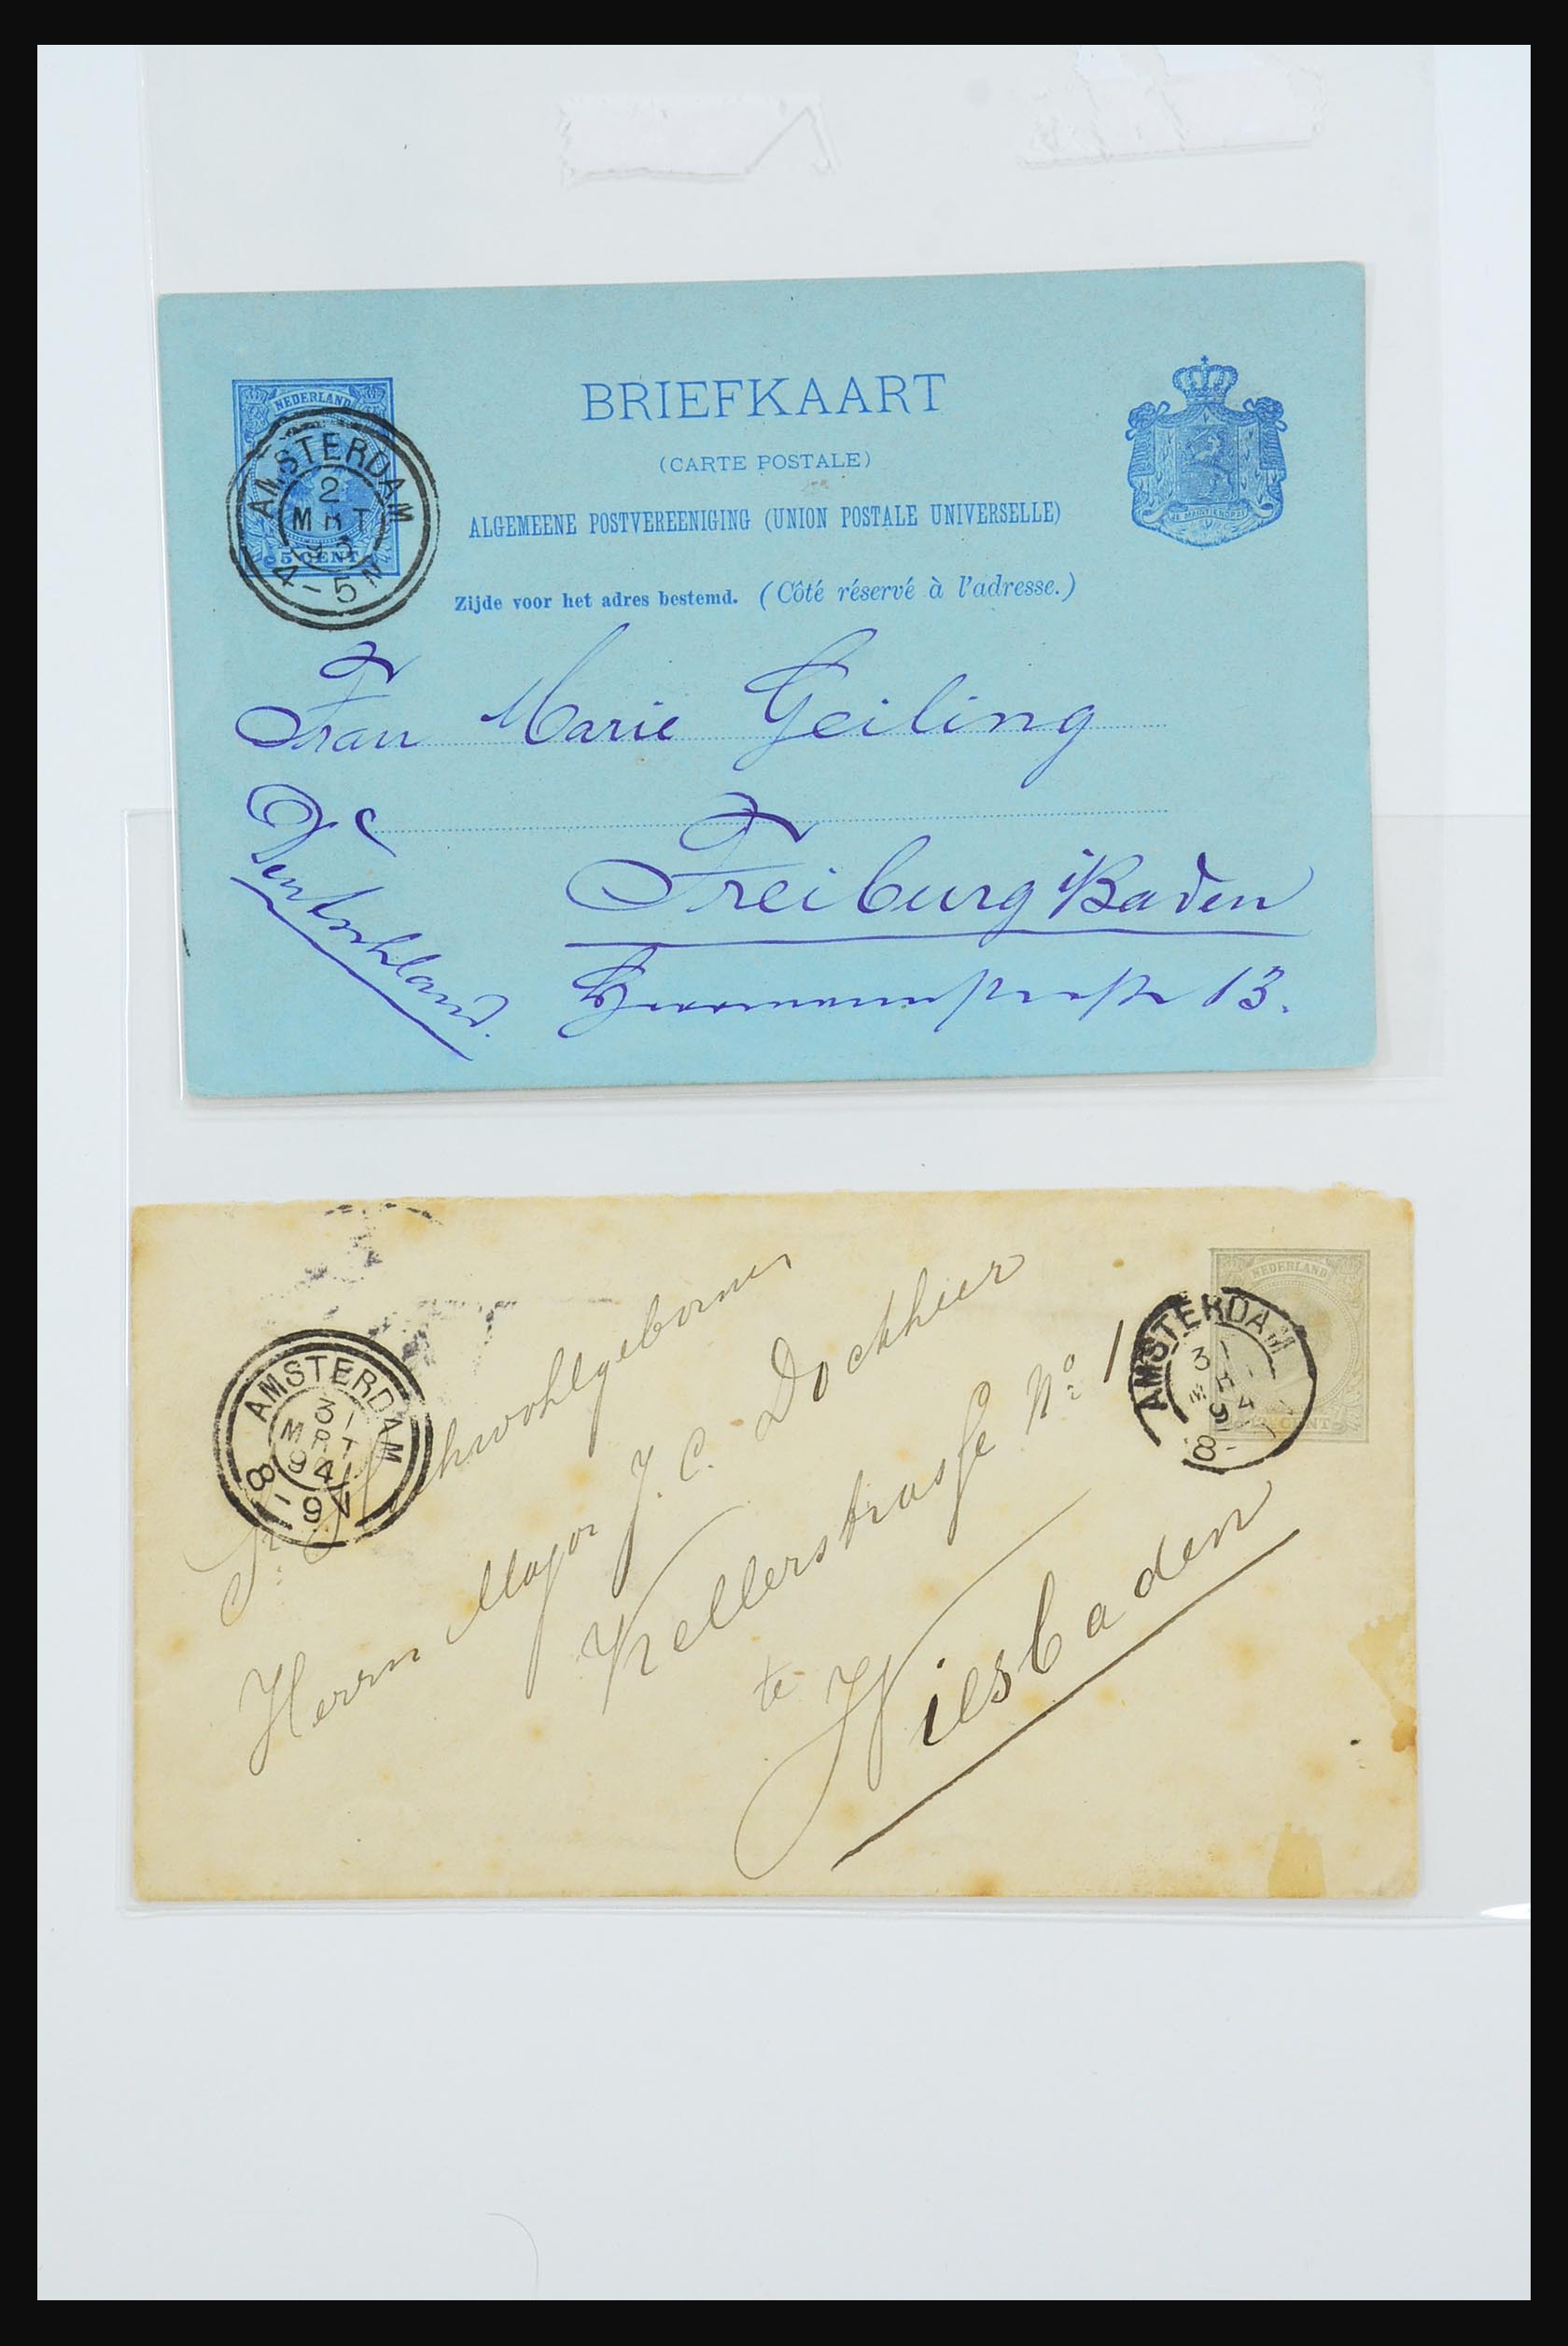 NEDERLAND
5 CENT
AMSTERDAM
2
MRT
4-5N
BRIEFKAART
(CARTE POSTALE)
ALGEMEENE POSTVEREENIGING (UNION POSTALE UNIVERSELLE)
Zijde voor het adres bestemd. (Côté réservé à l'adresse.)
JE MAINTIENDRAI
Frau Marie Geiling
Freiburg i/Baden
13.
Deutschland.
NEDERLAND
CENT
AMSTERDAM
31
MRT
94
8-9V
AMSTERDAM
31
8-
Sr. Hochwohlgeboren
Herrn Major J. C. Dockheer
Kellerstrasse No. 1
te
Wiesbaden